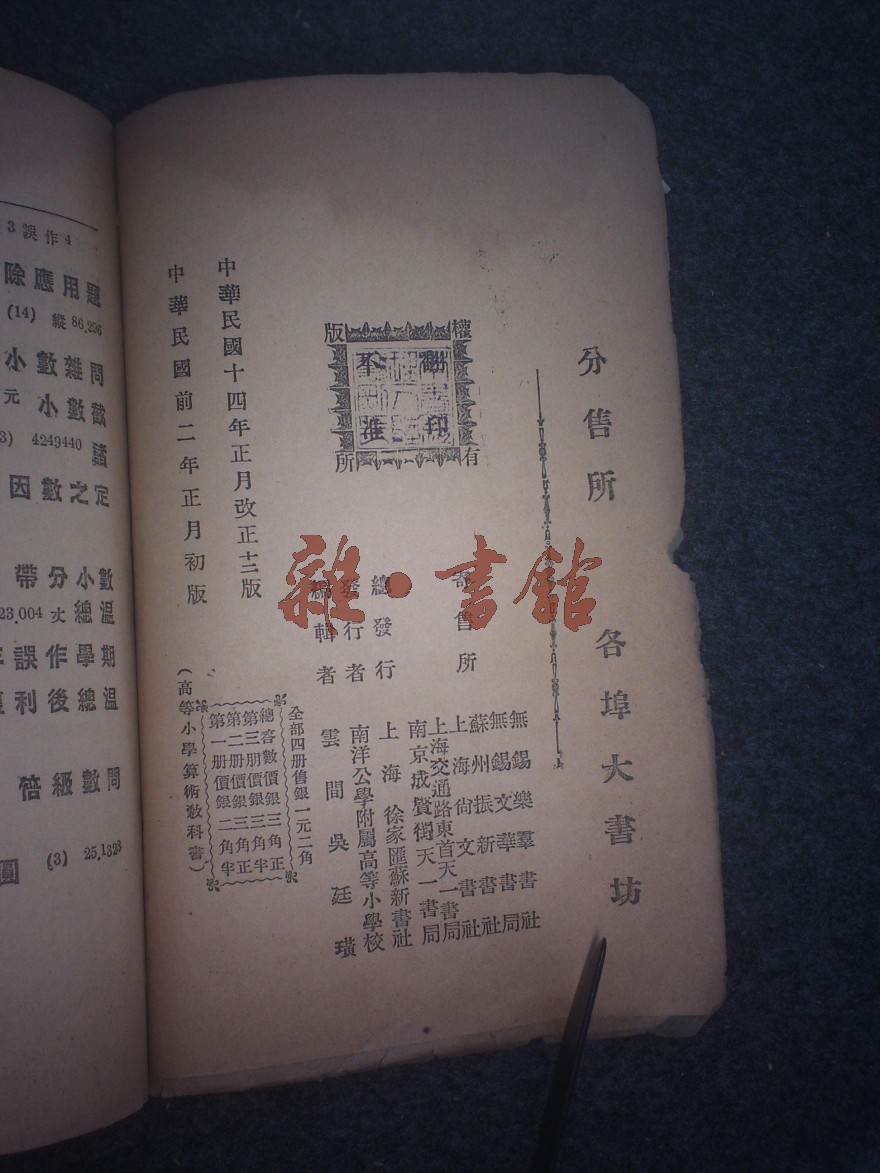 分售所 各埠大書坊
無錫樂羣書社
無錫文華書局
蘇州振新書社
上海尙文書社
上海交通路東首天一書局
南京成賢街天一書局
寄售所
總發行 上海徐家匯蘇新書社
發行者 南洋公學附屬高等小學校
編輯者 雲間吳廷璜
版權所有
翻印
不准
全部四册售銀一元二角
總答數價銀三角正
第三册價銀三角半
第二册價銀三角正
第一册價銀二角半
(高等小學算術敎科書)
中華民國十四年正月改正十三版
中華民國前二年正月初版
雜·書館
3誤作4
除應用題
(14) 縱 86.296
小數雜問
元 小數截
3) 4249440 諸
因數之定
帶分小數
23.004 丈 總溫
誤作學期
利後總溫
倍級數問
(3) 25.1323
圓